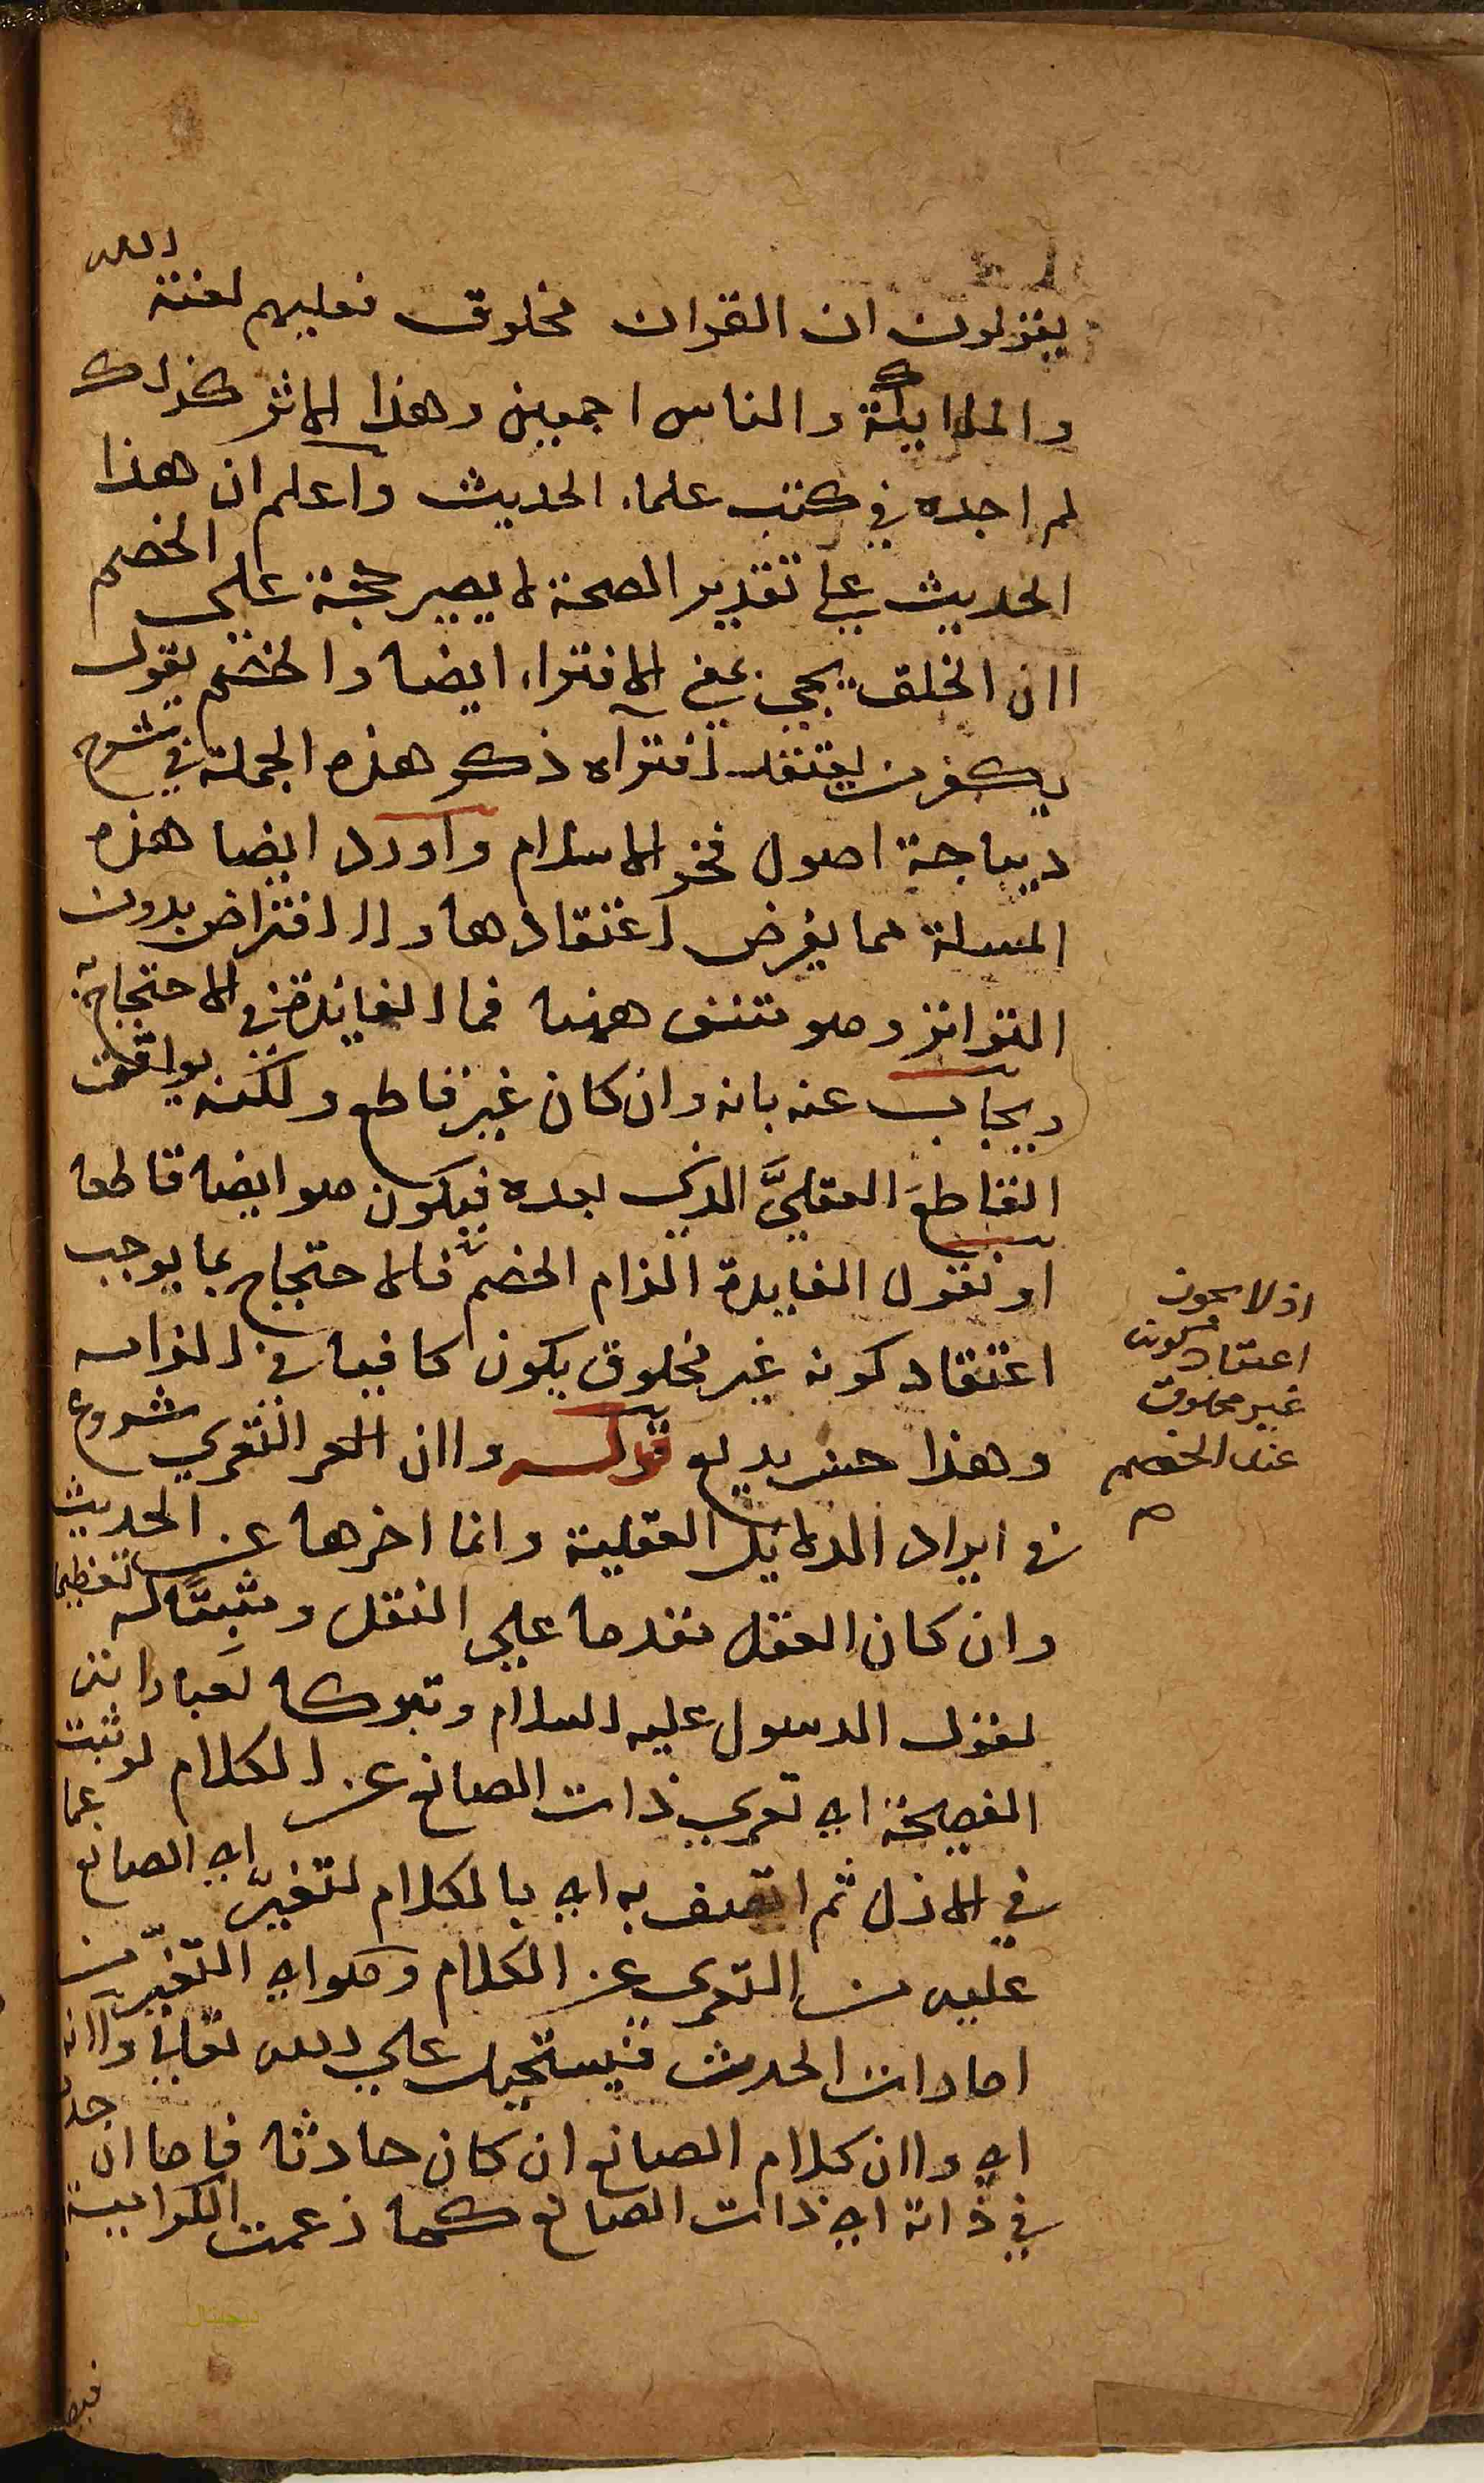 يقولون ان القران مخلوق فعليهم لعنة الله
والملايكة والناس اجمعين وهذا الاثر كذلك
لم اجده في كتب علماء الحديث واعلم ان هذا
الحديث على تقدير الصحة لا يصير حجة على الخصم
لان الخلق يجي بمعني الافتراء ايضا والخصم يقول
بكفر من يعتقد افتراه ذكر هذه الجملة في شرح
ديباجة اصول فخر الاسلام واورد ايضا هذه
المسلة مما يفرض اعتقادها ولا افتراض بدون
التواتر وهو منتف ههنا فما الفايدة في الاحتجاج به
ويجاب عنه بانه وان كان غير قاطع ولكنه يوافقه
القاطعَ العقليَّ الذي بعده فيكون هو ايضا قاطعا
او نقول الفايدة الزام الخصم فالاحتجاج بما يوجب
اعتقاد كونه غير مخلوق يكون كافيا في الزامه
وهذا حسن بديع قوله ولان التعري شروع
في ايراد الدلايل العقلية وانما اخرها عن الحديث
وان كان العقل مقدما علي النقل ومثبِتًا له تعظيما
لقول الرسول عليه السلام وتبركا بعباراته
الفصيحة اي تعري ذات الصانع عن الكلام لو ثبت
في الازل ثم اتصف به اي بالكلام لتغيّر اي الصانع عما
عليه من التعري عن الكلام وهو اي التغيّر من
امارات الحدث فيستحيل علي الله تعالي ولانه
اي ولان كلام الصانع ان كان حادثا فاما ان حدث
في ذاته اي ذات الصانع كما زعمت الكرامية
اذ لا يجوز
اعتقاد كونه
غير مخلوق
عند الخصم